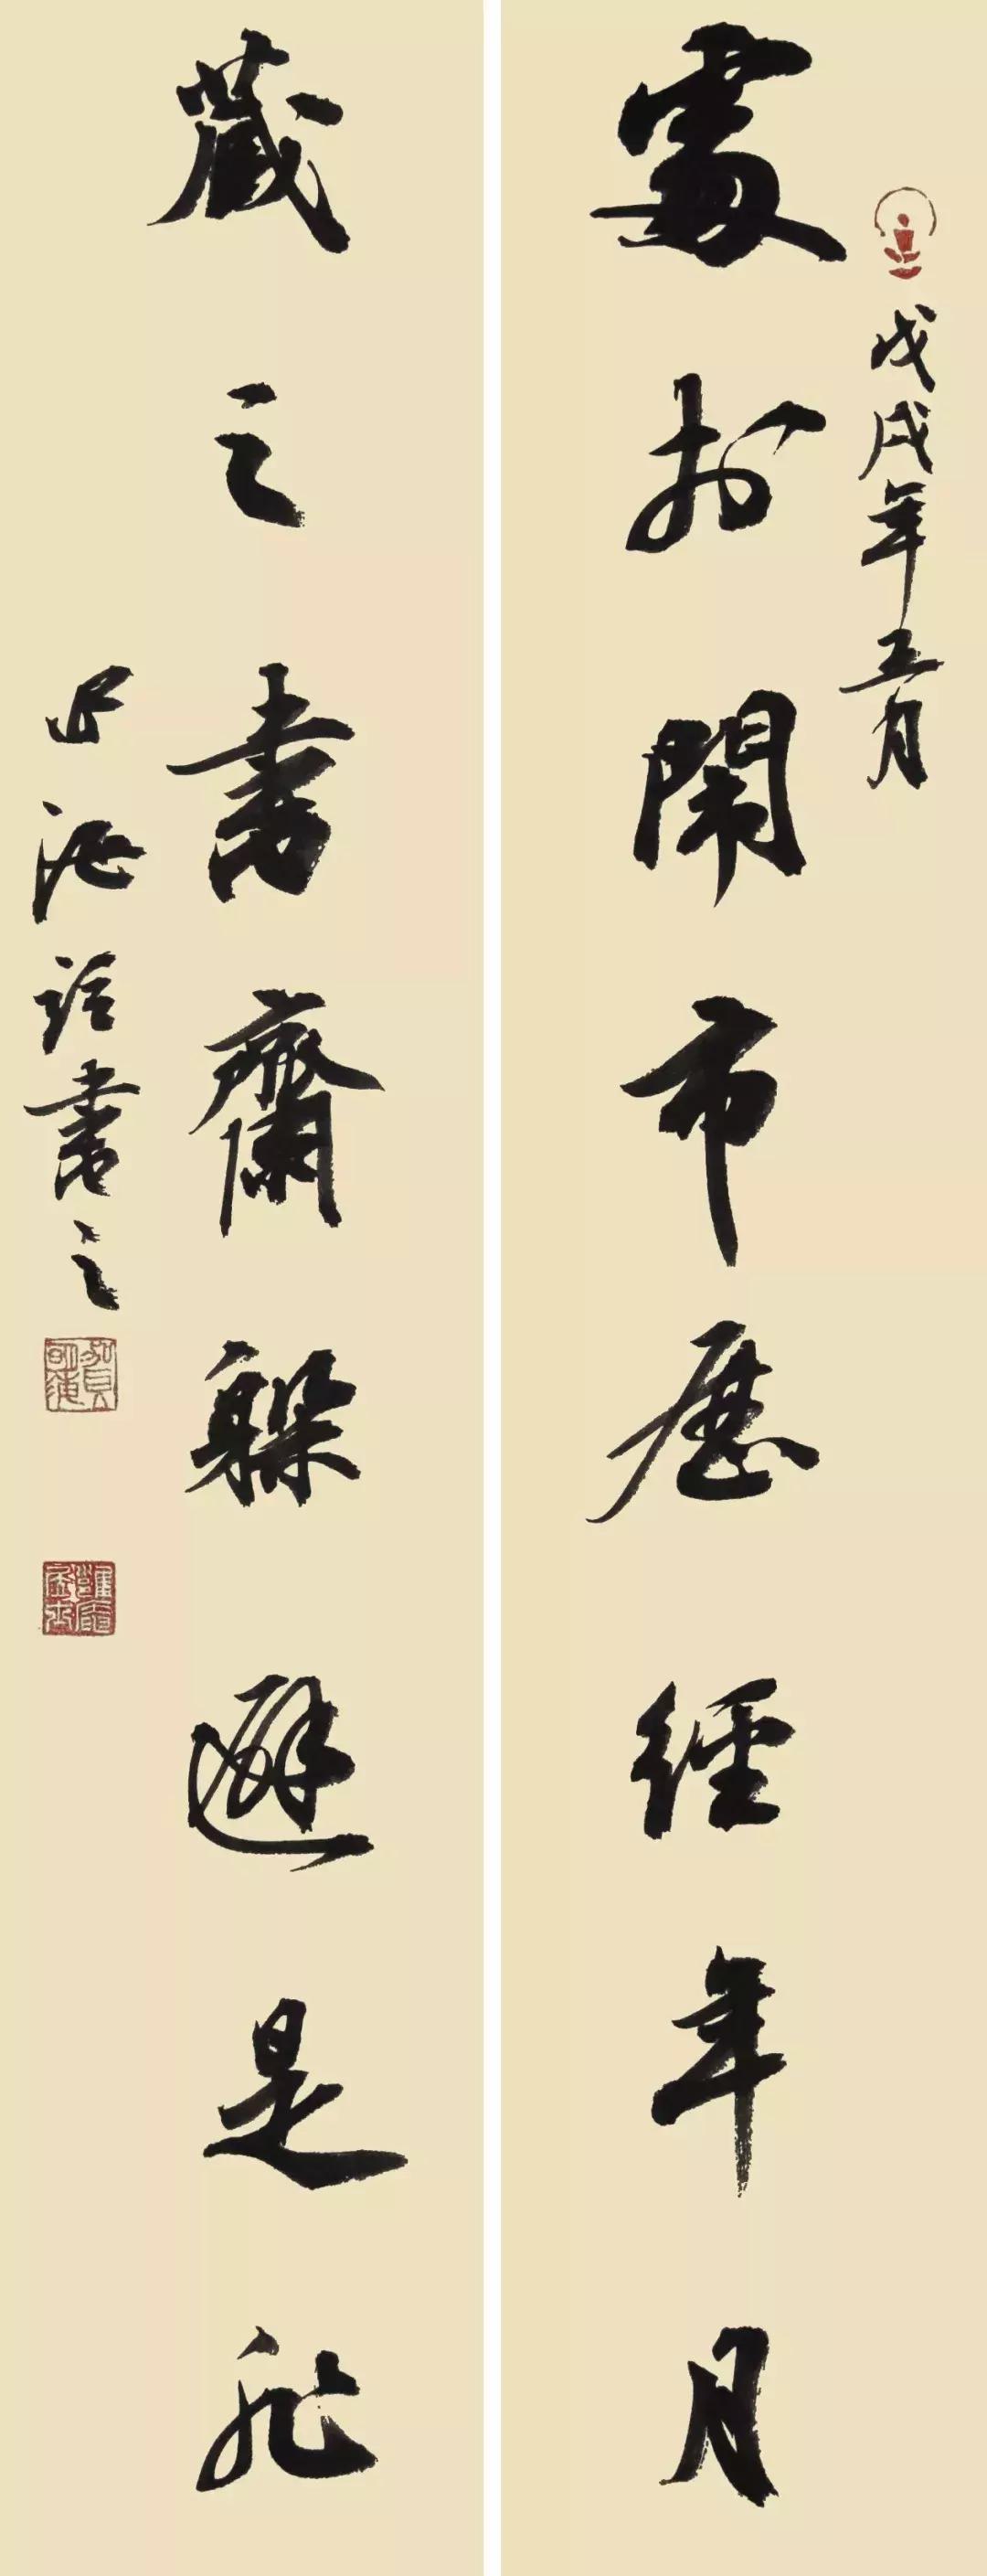 戊戌年五月
處於鬧市歷經年月
藏之書齋躲避是非
書之